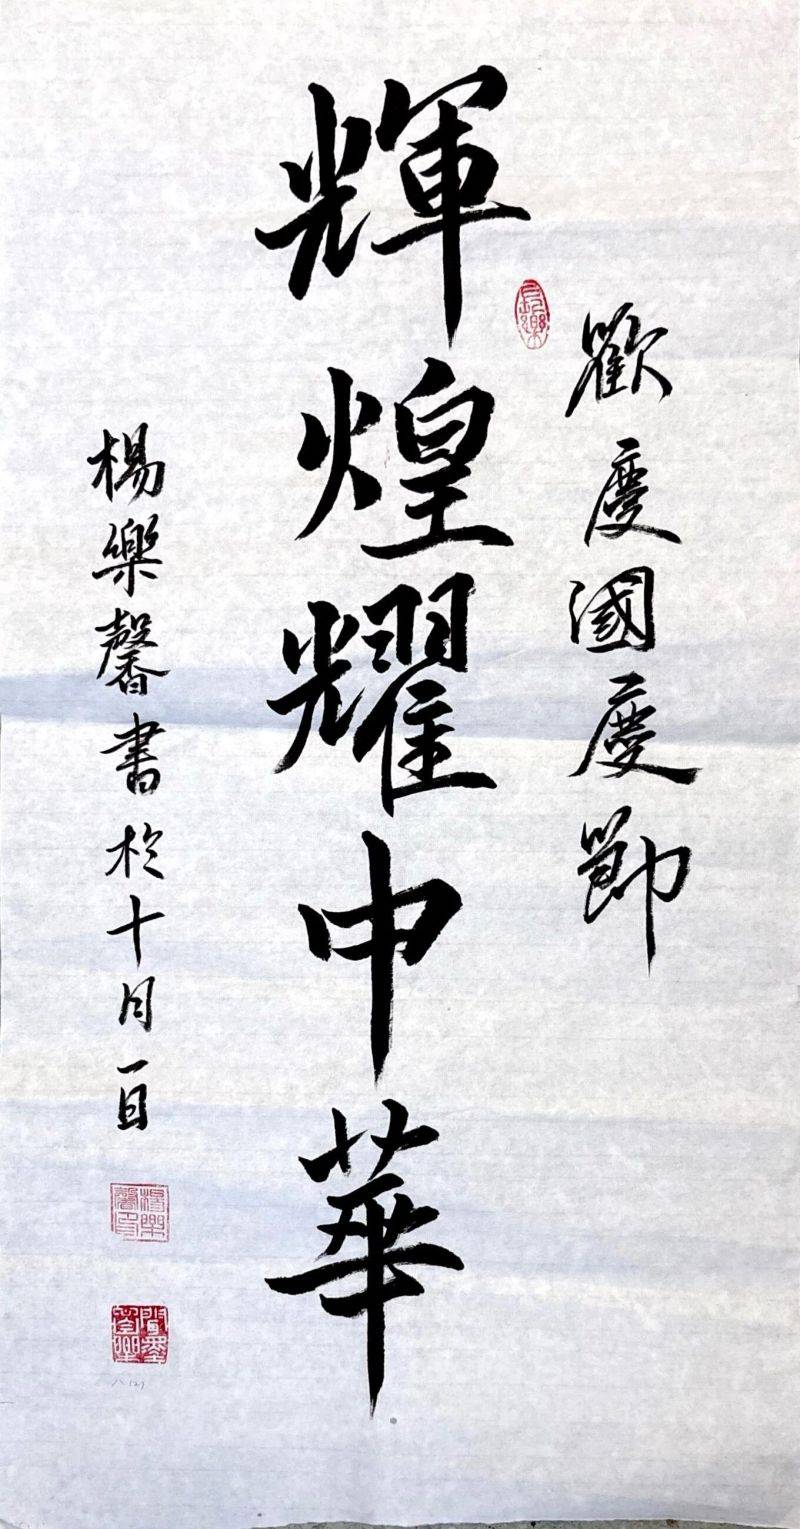 歡慶國慶節
輝煌耀中華
楊樂馨書於十月一日